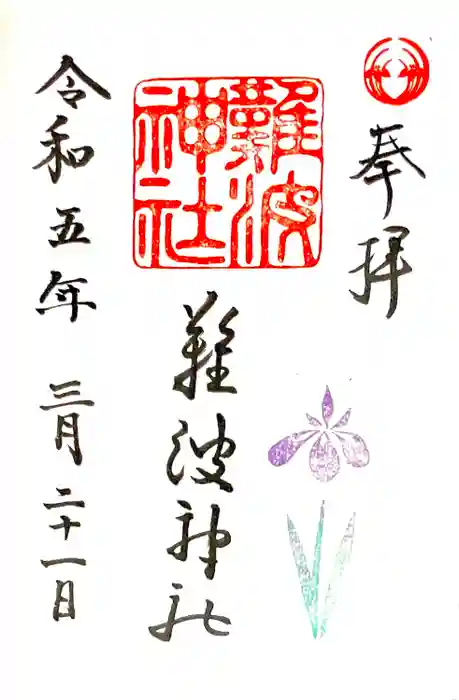 奉拝
難波神社
難波神社
令和五年 三月二十一日